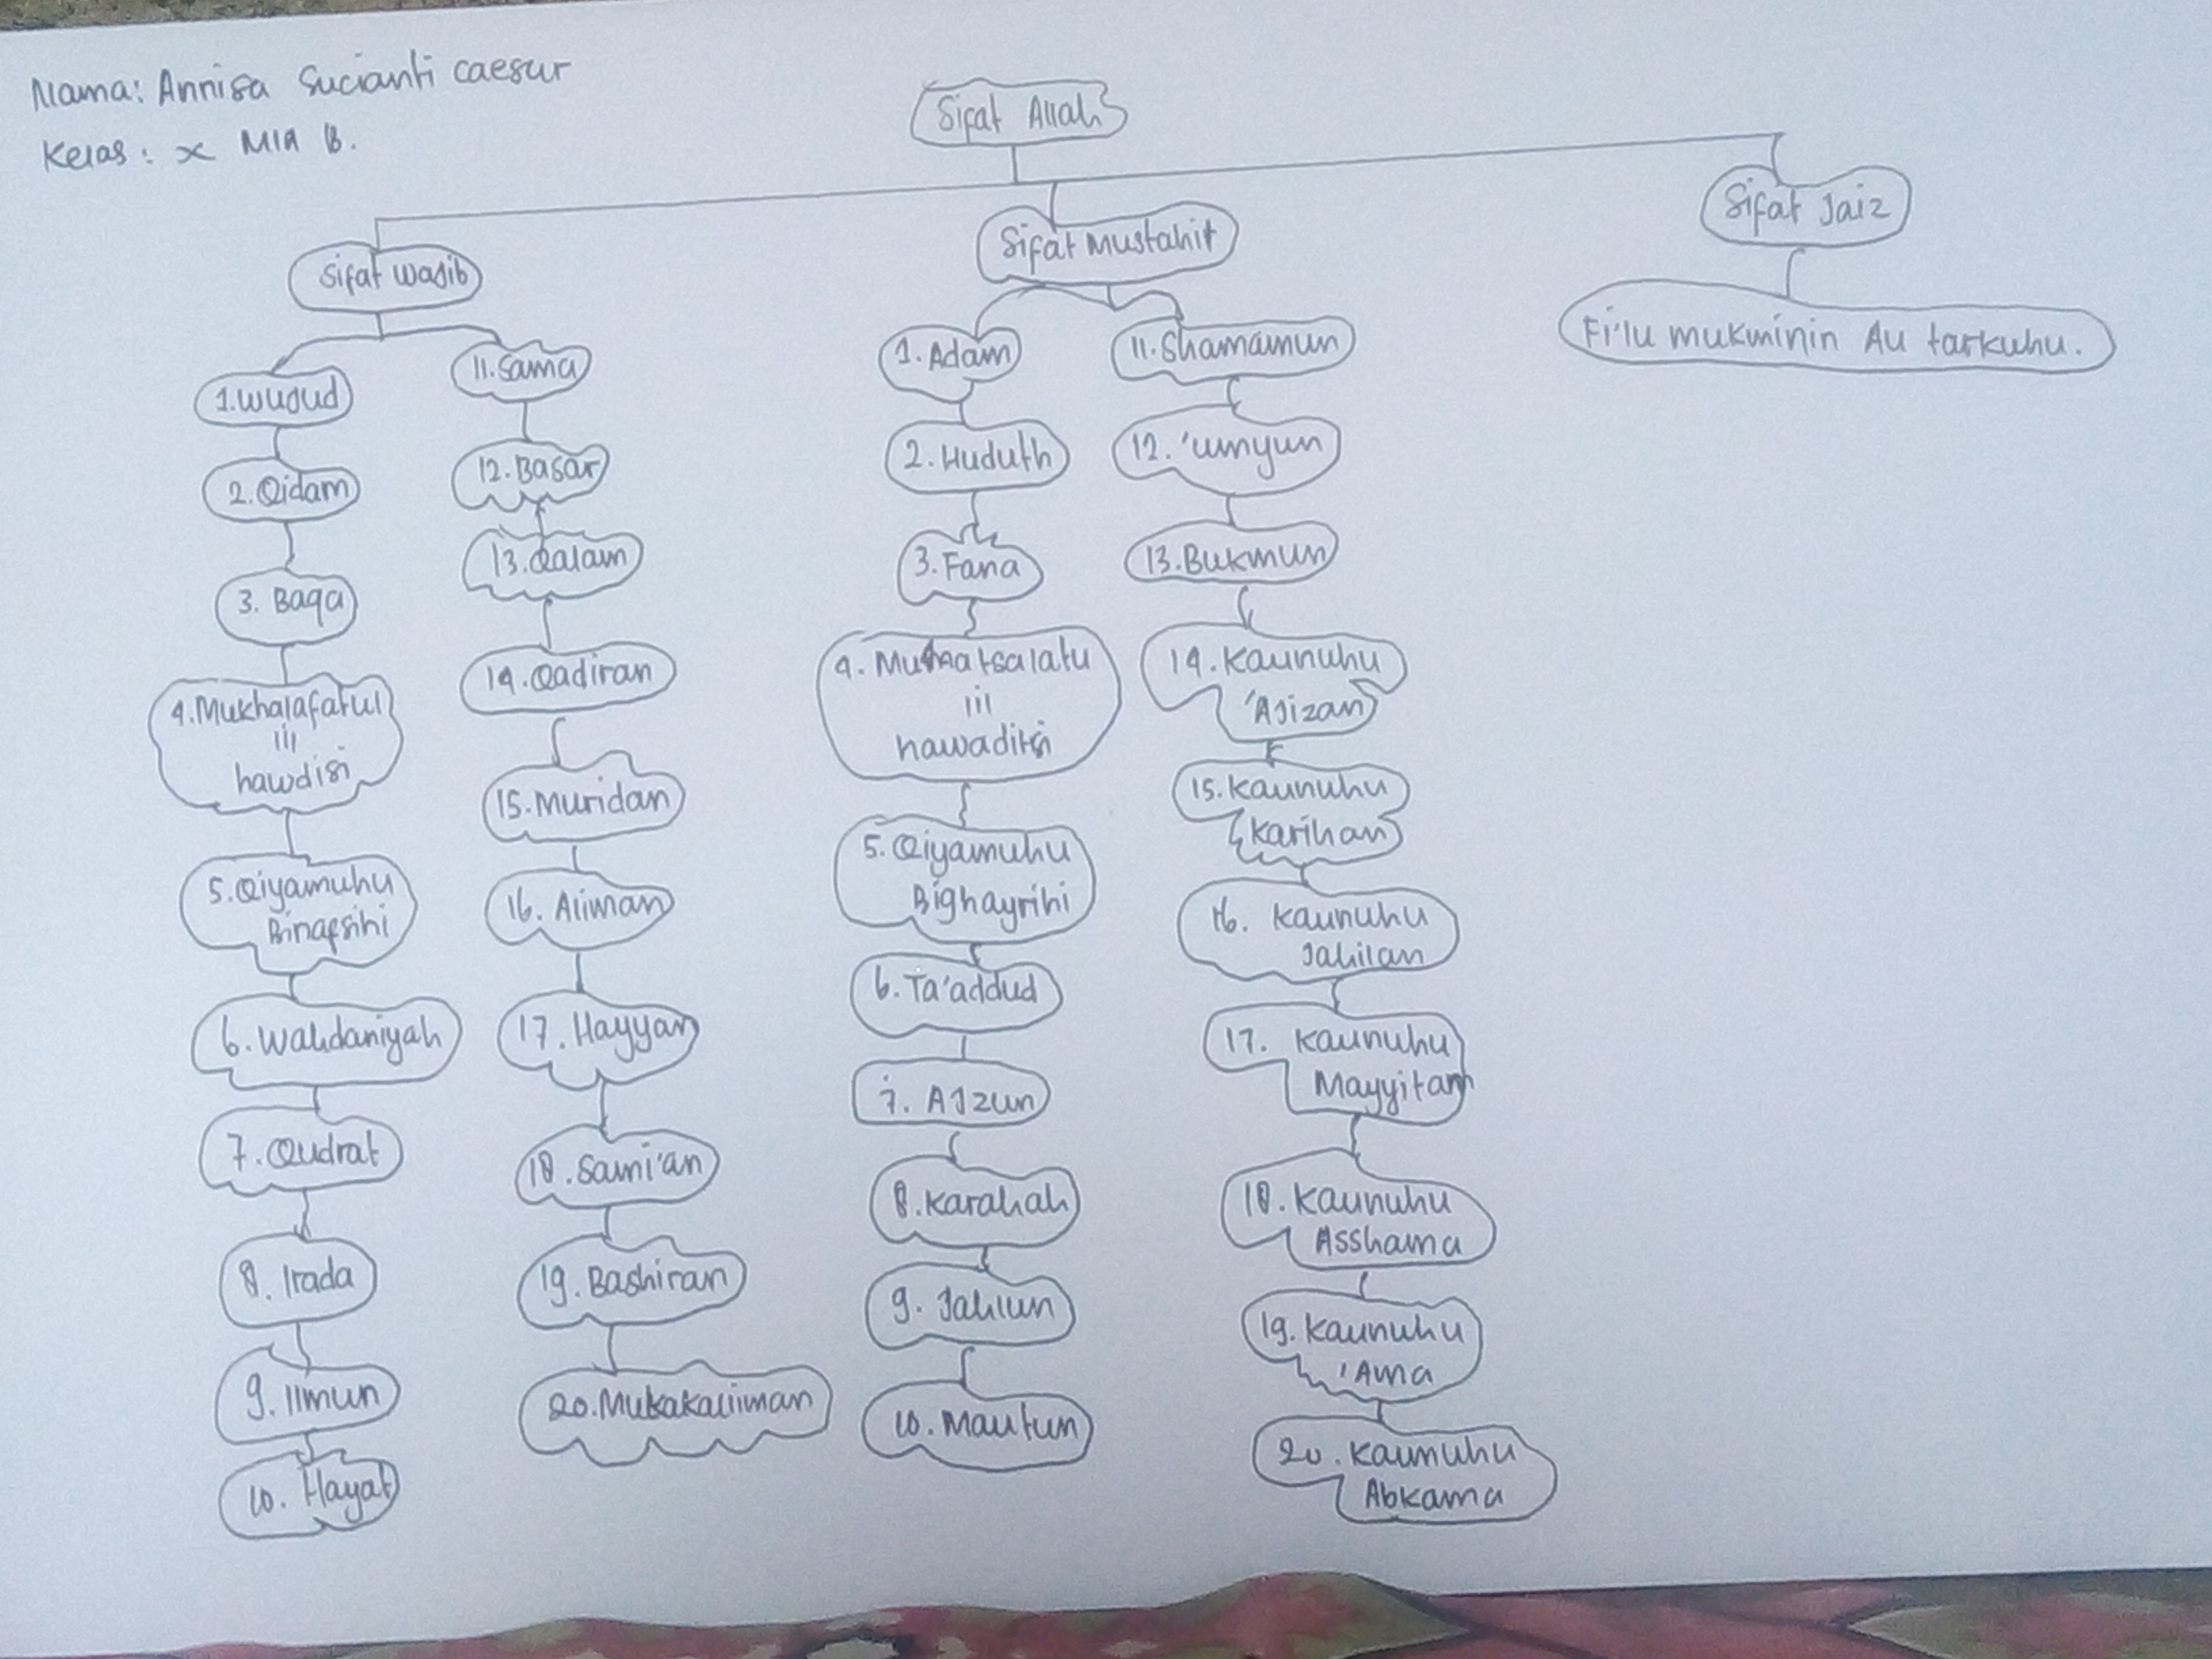 Nama: Annisa Sucianti Caesur
Kelas: X MIA B.
Sifat Allah
Sifat Wajib
1.Wujud
2.Qidam
3. Baqa
4.Mukhalafatul
lil
hawdisi
5.Qiyamuhu
Binafsihi
6.Wahdaniyah
7.Qudrat
8. Irada
9. Ilmun
10. Hayat
11.Sama
12.Basar
13.Qalam
14.Qadiran
15.Muridan
16. Aliman
17. Hayyan
18.Sami'an
19.Bashiran
20.Mukakaliiman
Sifat Mustahit
1.Adam
2.Huduth
3.Fana
4. Mumatsalatu
lil
hawaditsi
5.Qiyamuhu
Bighayrihi
6.Ta'addud
7. AJzun
8.Karahah
9. Jahlun
10. Mautun
11.Shamamun
12. 'umyun
13.Bukmun
14.Kaunuhu
'AJizan
15.Kaunuhu
Karihan
16. Kaunuhu
Jahilan
17. Kaunuhu
Mayyitan
18. Kaunuhu
Asshama
19.Kaunuhu
'Ama
20. Kaunuhu
Abkama
Sifat Jaiz
Fi'lu mukminin Au tarkuhu.